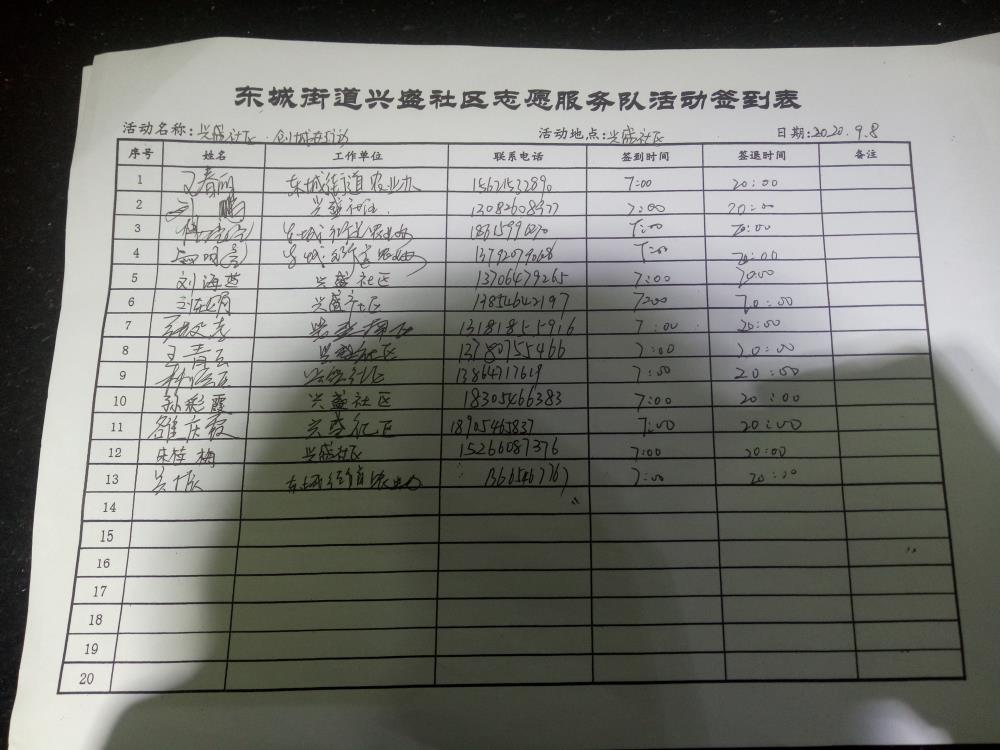 东城街道兴盛社区志愿服务队活动签到表
活动名称:兴盛社区 创城活动 活动地点:兴盛社区 日期:2020.9.8
序号 姓名 工作单位 联系电话 签到时间 签退时间 备注
1 东城街道农业办 15621532890 7:00 20:00
2 刘鹏 兴盛社区 13082608377 7:00 20:00
3 东城街道农业办 7:00 20:00
4 东城街道农业办 7:00 20:00
5 刘海燕 兴盛社区 13706479265 7:00 20:00
6 兴盛社区 13854642197 7:00 20:00
7 兴盛社区 13181855916 7:00 20:00
8 王青云 兴盛社区 13780755466 7:00 20:00
9 兴盛社区 13864717619 7:00 20:00
10 孙彩霞 兴盛社区 18305466383 7:00 20:00
11 庆霞 兴盛社区 18905465837 7:00 20:00
12 梅 兴盛社区 15266087376 7:00 20:00
13 东城街道农业办 13665467767 7:00 20:00
14
15
16
17
18
19
20